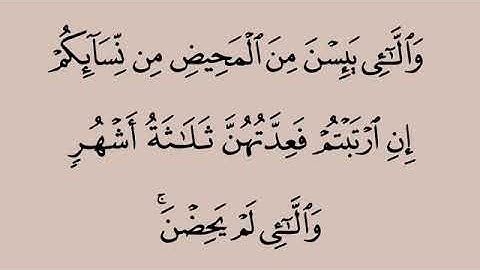 وَٱلَّـٰٓـِٔى يَئِسْنَ مِنَ ٱلْمَحِيضِ مِن نِّسَآئِكُمْ
إِنِ ٱرْتَبْتُمْ فَعِدَّتُهُنَّ ثَلَـٰثَةُ أَشْهُرٍ
وَٱلَّـٰٓـِٔى لَمْ يَحِضْنَ ۚ